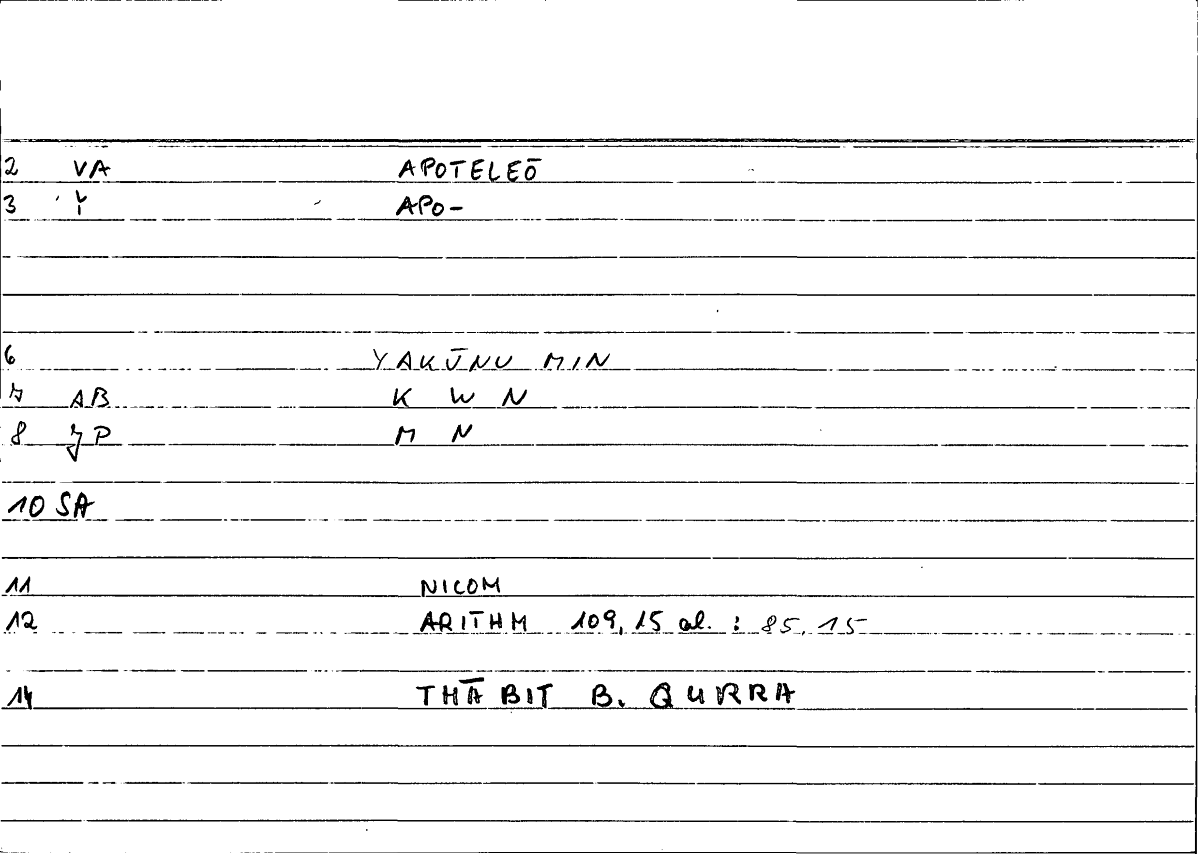 2 VA APOTELEŌ
3 Y APO-
6 YAKŪNU MIN
7 AB K W N
8 P M N
10 SA
11 NICOM
12 ARITHM 109,15 al. : 85.15
14 THĀBIT B. QURRA